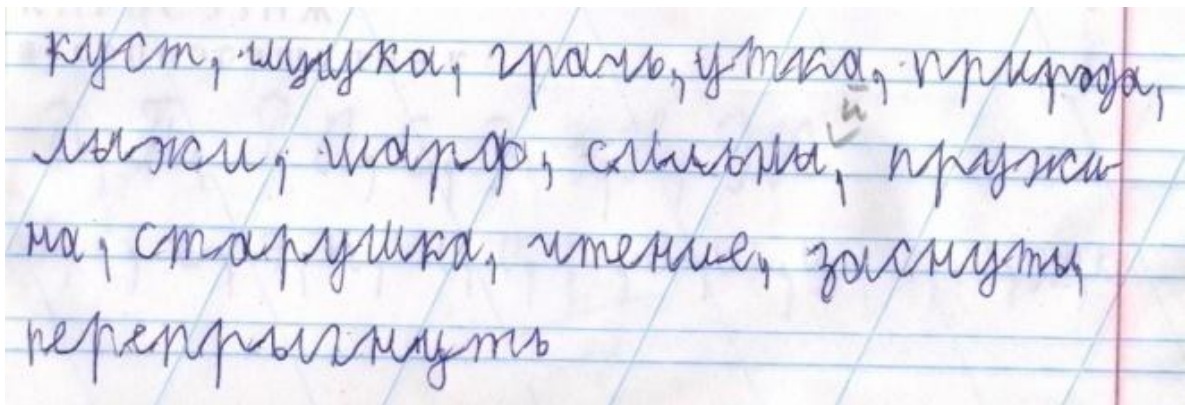 куст, щука, грачь, утка, природа,
лыжи, шарф, сильны, пружи
на, старушка, чтение, заснуть,
перепрыгнуть